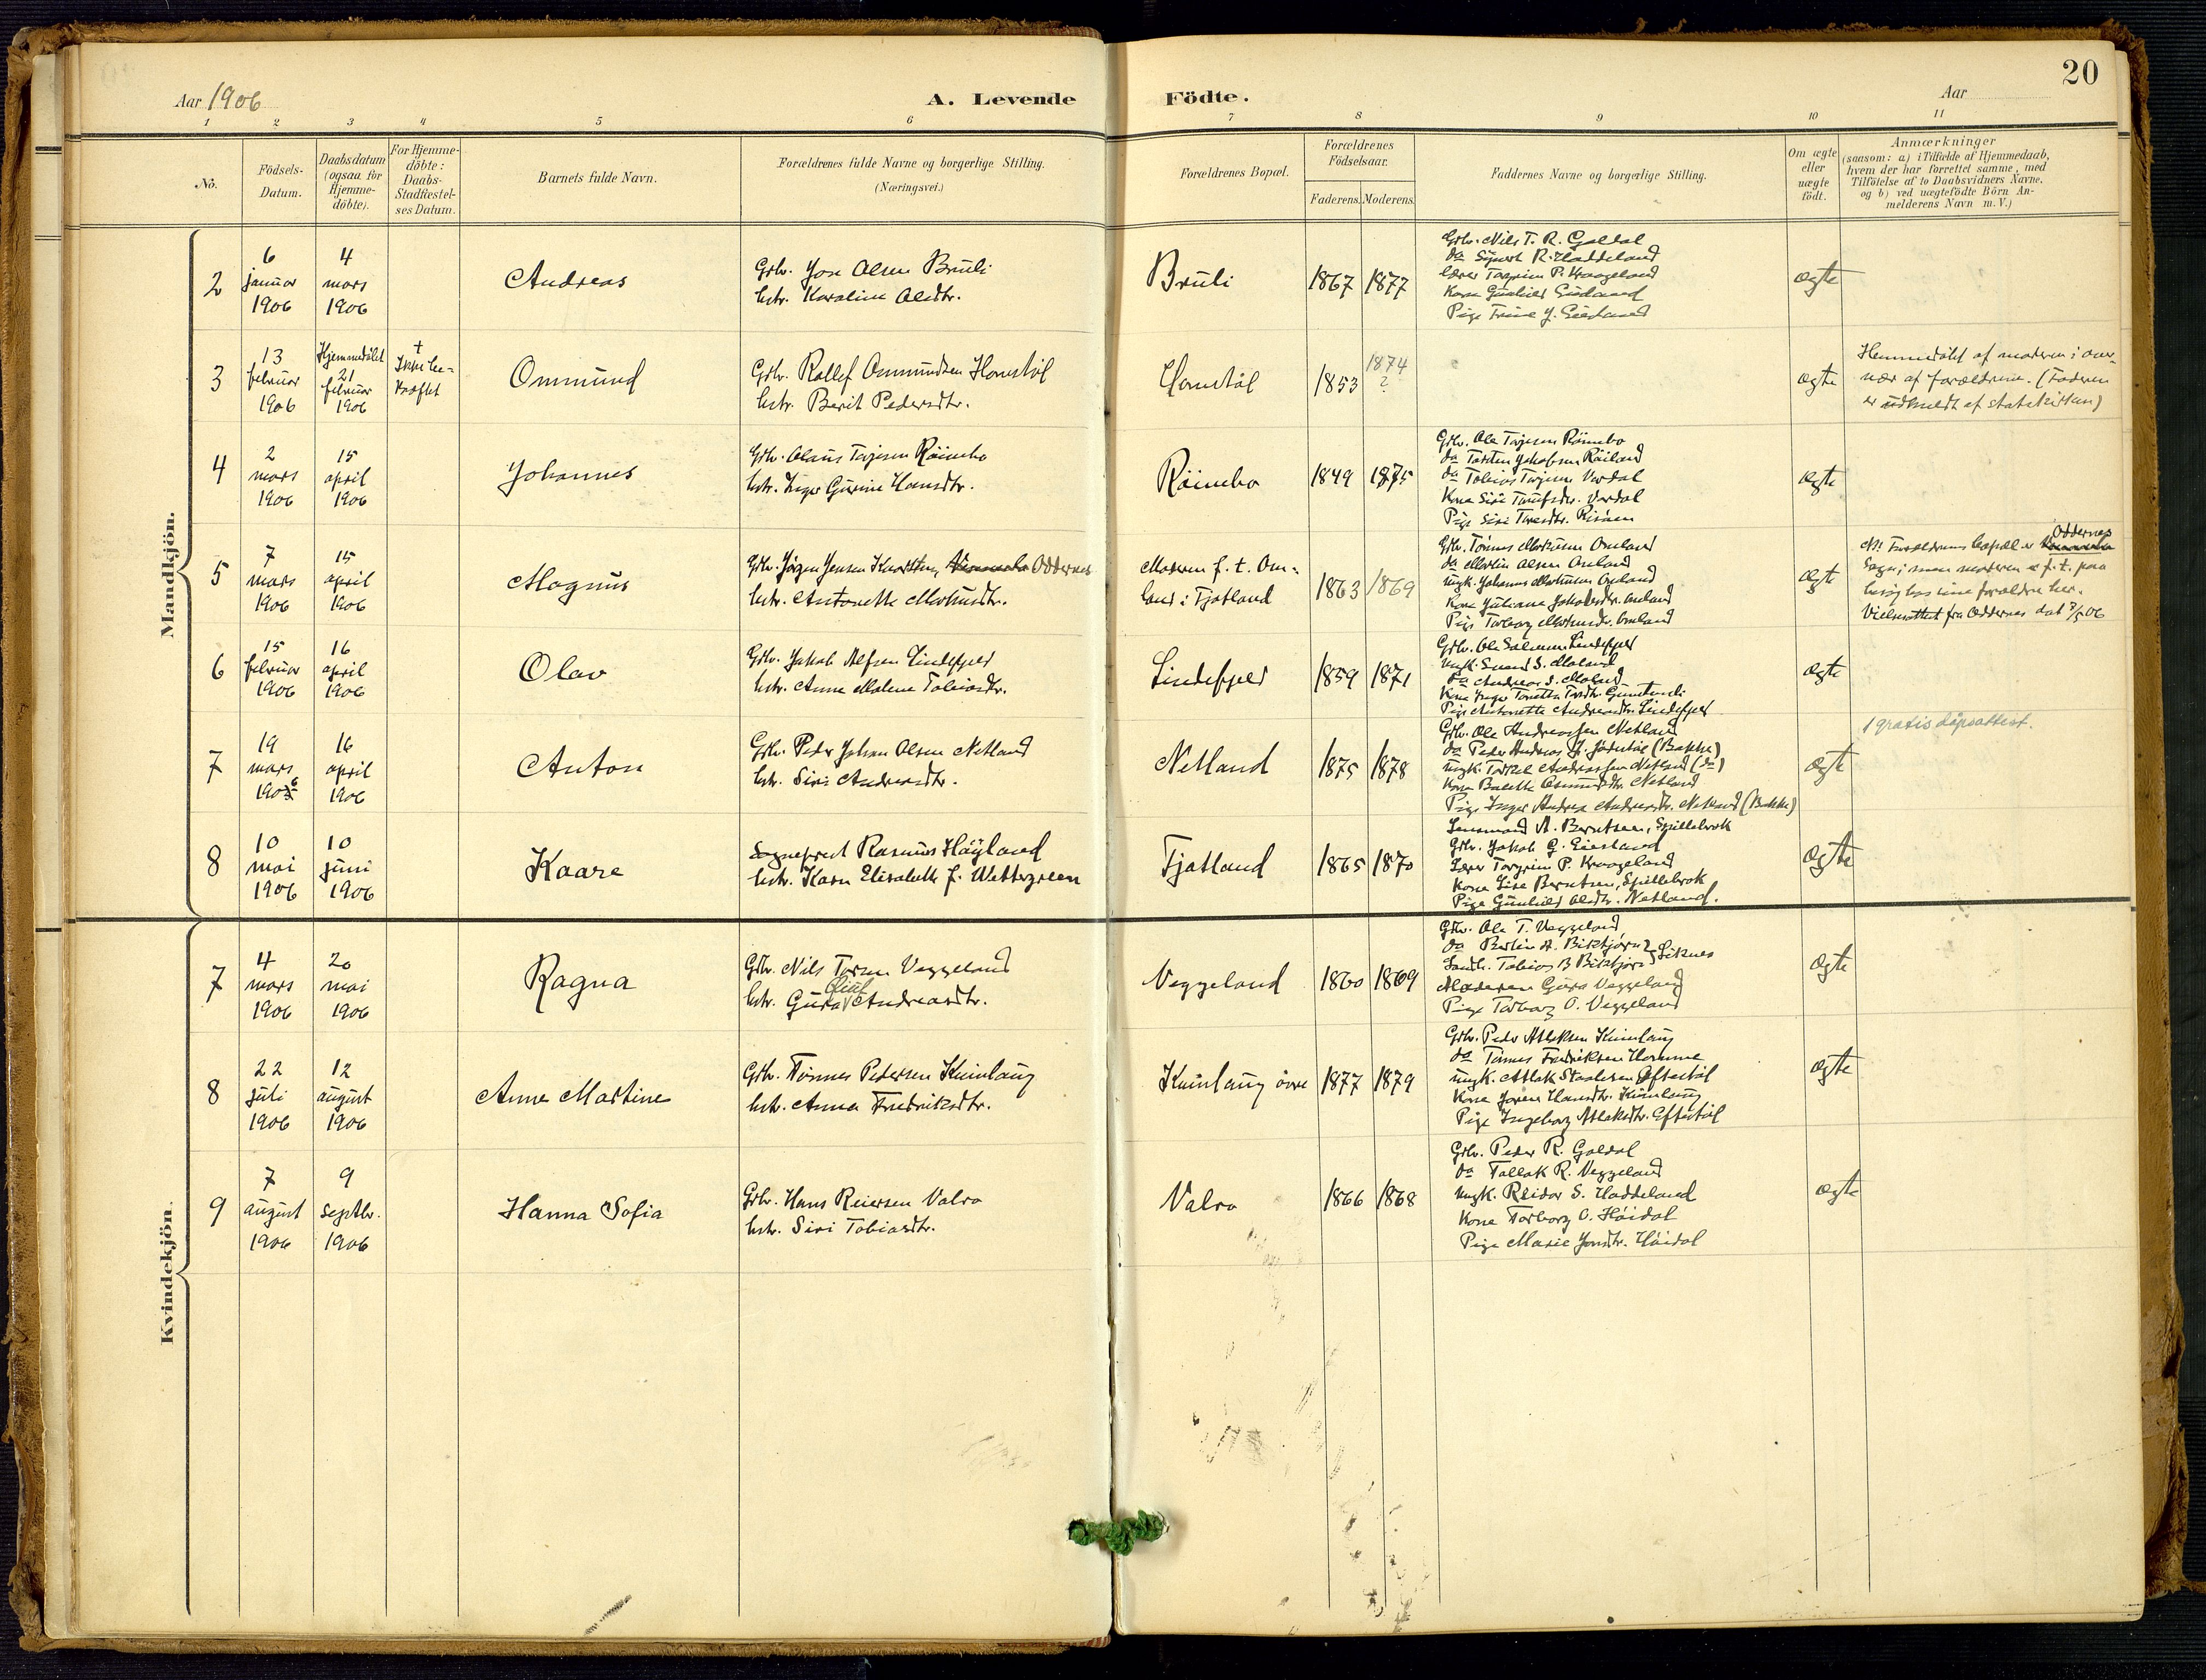 20
Aar 1906
A. Levende
Födte.
Aar
1 2 3 4 5 6 7 8 9 10 11
No.
Födsels-
Datum.
Daabsdatum
(ogsaa for
Hjemme-
döbte).
For Hjemme-
döbte:
Daabs-
Stadfæstel-
ses Datum.
Barnets fulde Navn.
Forældrenes fulde Navne og borgerlige Stilling.
(Næringsvei.)
Forældrenes Bopæl.
Forældrenes
Födselsaar.
Faderens.
Moderens.
Faddernes Navne og borgerlige Stilling.
Om ægte
eller
uægte
födt.
Anmærkninger
(saasom: a) i Tilfælde af Hjemmedaab,
hvem der har forrettet samme, med
Tilföielse af to Daabsvidners Navne.
og b) ved uægtefödte Börn An-
melderens Navn m. V.)
Mandkjön.
2
6
januar
1906
4
mars
1906
Andreas
Grbr. Jon Olsen Bruli
hstr. Karoline Olsdtr.
Bruli
1867
1877
Grbr. Nils T. R. Galdal
do Sigvart R. Haddeland
lærer Torgrim P. Kraageland
Kona Gunhild Eiesland
Pige Trine J. Eiesland
ægte
3
13
februar
1906
Hjemmedöbt
21
februar
1906
+
Ikke be-
kræftet
Ommund
Grbr. Rollef Ommundsen Homstöl
hstr. Berit Pedersdtr.
Homstöl
1853
1874
?
ægte
Hemmedöbt af moderen i over-
vær af forældrene. (Faderen
er udmeldt af statskirken)
4
2
mars
1906
15
april
1906
Johannes
Grbr. Olaus Tarjesen Röinebo
hstr. Inger Gurine Hansdtr.
Röinebo
1849
1875
Grbr. Ole Tarjesen Röinebo
do Torsten Jakobsen Röiland
do Tobias Tarjesen Verdal
Kona Siri Verdal
Pige Siri Toresdtr.
ægte
5
7
mars
1906
15
april
1906
Magnus
Grbr. Jörgen Jensen Oddernes
hstr. Antonette Markusdtr.
Moderen f. t. Om-
land i Fjotland
1863
1869
Grbr. Tönnes Markusen Omland
do Martin Olsen Omland
ungk. Johannes Markusen Omland
Kona Juliane Jakobsdtr. Omland
Pige Torborg Markusdtr. Omland
ægte
Oddernes
N! Forældrenes bopæl er
Sogn, men moderen er f. t. paa
besög hos sine forældre her.
Vielsesattest fra Oddernes dat 7/5 06
6
15
februar
1906
16
april
1906
Olav
Grbr. Jakob Alfsen Lindefjeld
hstr. Anne Malene Tobiasdtr.
Lindefjeld
1859
1871
Grbr. Ole Salvesen Lindefjeld
ungk. Svend S. Moland
do Andreas S. Moland
Kona Inger Tonette
Pige Antonette Andreasdtr. Lindefjeld
ægte
7
19
mars
1906
16
april
1906
Anton
Grbr. Peder Johan Olsen Netland
hstr. Siri Andreasdtr.
Netland
1875
1878
Grbr. Ole Andreassen Netland
do Peder Andreas (Bakke)
ungk. Torkel Andreassen Netland (do)
Kona Bolette Netland
Pige Inger Andrea Andreasdtr. Netland (Bakke)
ægte
1 gratis dåpsattest.
8
10
mai
1906
10
juni
1906
Kaare
Sogneprest Rasmus Höyland
hstr. Karn Elisabeth f. Wettergreen
Fjotland
1865
1870
Lensmand A. Berntsen, Spillebrok
Grbr. Jakob G. Eiesland
Lærer Torgrim P. Kraageland
Kona Lise Berntsen, Spillebrok
Pige Gunhild Olsdtr. Netland.
ægte
Kvindekjön.
7
4
mars
1906
20
mai
1906
Ragna
Grbr. Nils Torsen Veggeland
hstr. Gura Andreasdtr.
Veggeland
1860
1869
Grbr. Ole T. Veggeland,
do Berlin A. Birkjörn
Tobias B. Birkjörn } Liknes
Moderen Gura Veggeland
Pige Torborg O. Veggeland
ægte
8
22
juli
1906
12
august
1906
Anne Martine
Grbr. Tönnes Pedersen Kvinlaug
hstr. Anna Fredriksdtr.
Kvinlaug övre
1877
1879
Grbr. Peder Atlaksen Kvinlaug
do Tönnes Fredriksen Homme
ungk. Atlak Staalesen Eftestöl
Kona Jorine Hansdtr. Kvinlaug
Pige Ingeborg Atlaksdtr. Eftestöl
ægte
9
7
august
1906
9
septbr.
1906
Hanna Sofia
Grbr. Hans Reiersen Valra
hstr. Siri Tobiasdtr.
Valra
1866
1868
Grbr. Peder R. Galdal
do Tallak R. Veggeland
ungk. Reidar S. Haddeland
Kona Torborg O. Höidal
Pige Marie Jonsdtr. Höidal
ægte